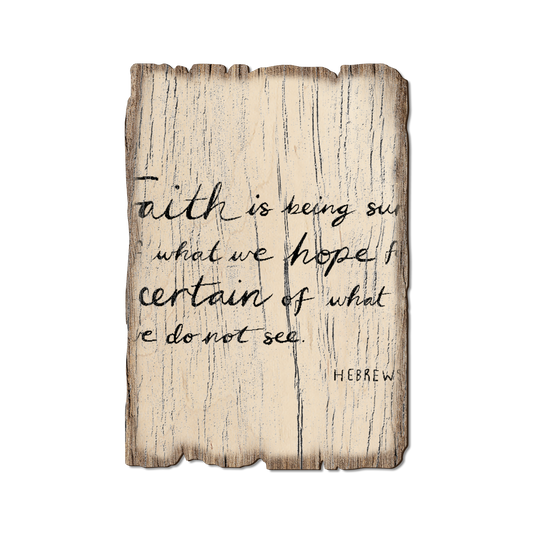 Faith is being su
what we hope f
certain of what
e do not see.
HEBREW